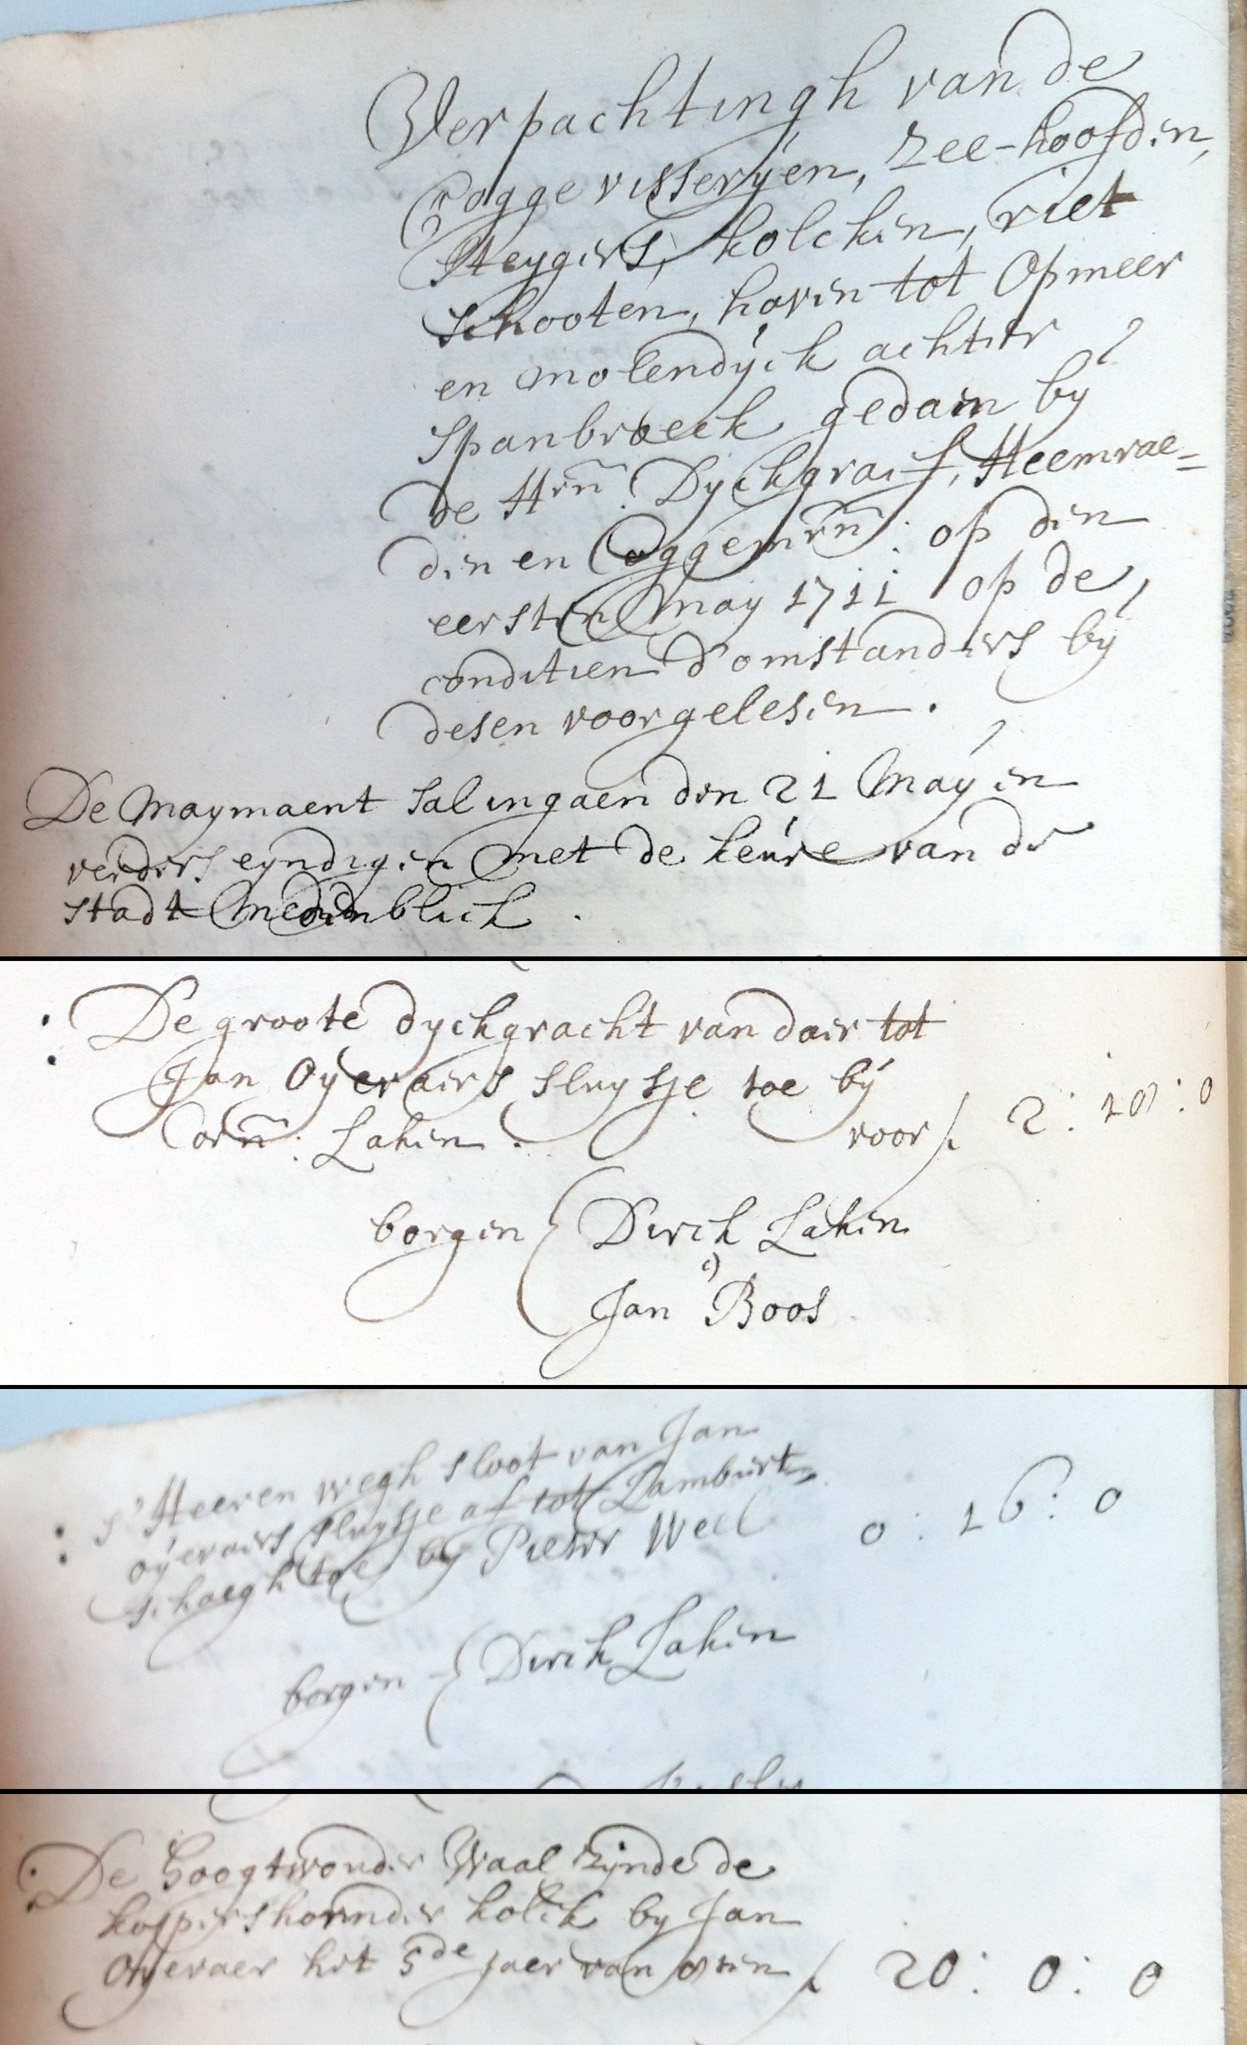 Verpachtingh van de
Cogge visserÿen, Zee-hoofden,
Steygers, kolcken, riet
schooten, haven tot Opmeer
en molendÿck achter
Spanbroeck gedaen bÿ
de Hrñ. Dyckgraef, Heemrae=
den en Coggemrñ: op den
eersten May 1711 op de
conditien d'omstanders bÿ
desen voorgelesen.
De maymaent sal ingaen den 21 Maÿ en
verders eyndigen met de keúre van de
stadt Medenblick.
De groote dyckgracht van daer tot
Jan Oÿevaers sluysje toe bÿ
Corñ: Laken. voor f 2:10:0
borgen { Dirck Laken
Jan Boos
s'Heeren wegh sloot van Jan
oÿevaers sluysje af tot Lambert
schaegh toe bÿ Pieter Weel 0:16:0
borgen { Dirck Laken
De hoogtwouder Waal zÿnde de
kospershornder kolck by Jan
Oÿevaer het 5de jaer van seven f 20:0:0